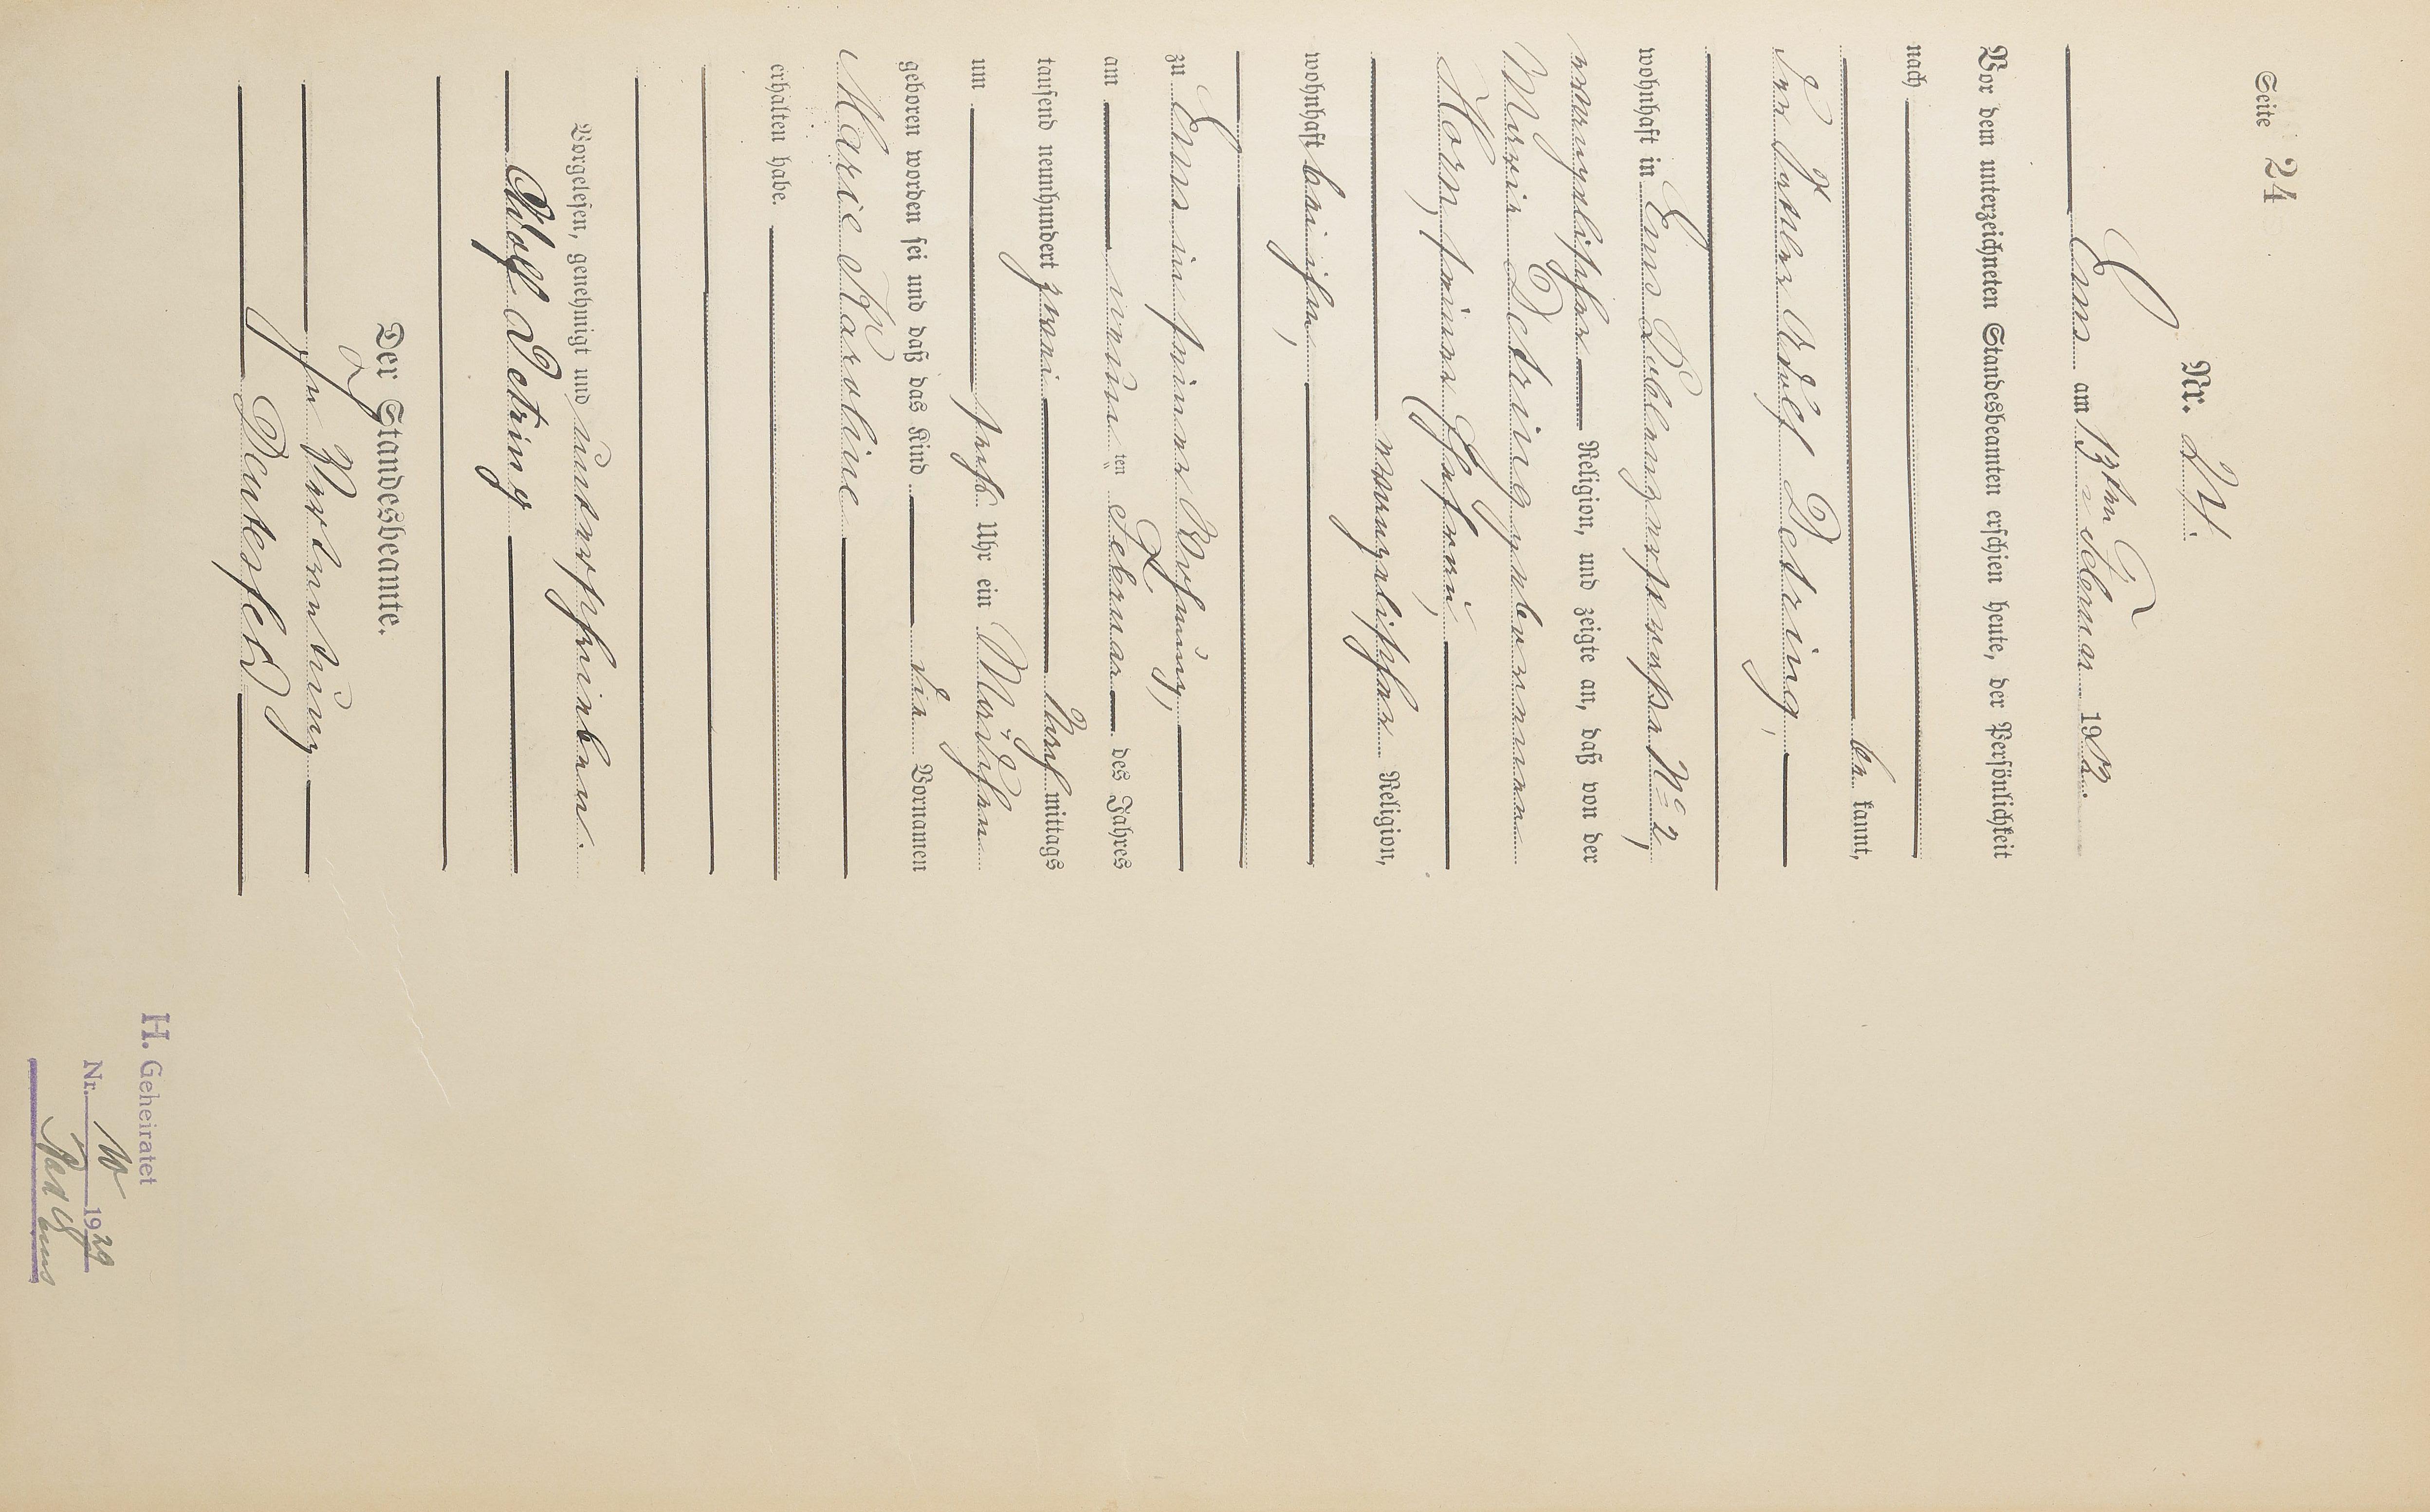 Seite 24
Nr. 24.
Ems am 13ten Februar 1902.
Vor dem unterzeichneten Standesbeamten erschien heute, der Persönlichkeit
nach
be kannt,
der Adolf Detring,
wohnhaft in Ems Coblenzerstrasse No 2,
evangelischer Religion, und zeigte an, daß von der
Marie Detring geborenen
Horn, seiner Ehefrau,
evangelischer Religion,
wohnhaft bei ihm,
zu Ems in seiner Wohnung,
am neunten Februar des Jahres
tausend neunhundert zwei Nachmittags
um sechs Uhr ein Mädchen
geboren worden sei und daß das Kind die Vornamen
Marie Karoline
erhalten habe.
Vorgelesen, genehmigt und unterschrieben.
Adolf Detring
Der Standesbeamte.
In Vertretung
Deutesfeld
H. Geheiratet
Nr. 10 1929
Bad Ems